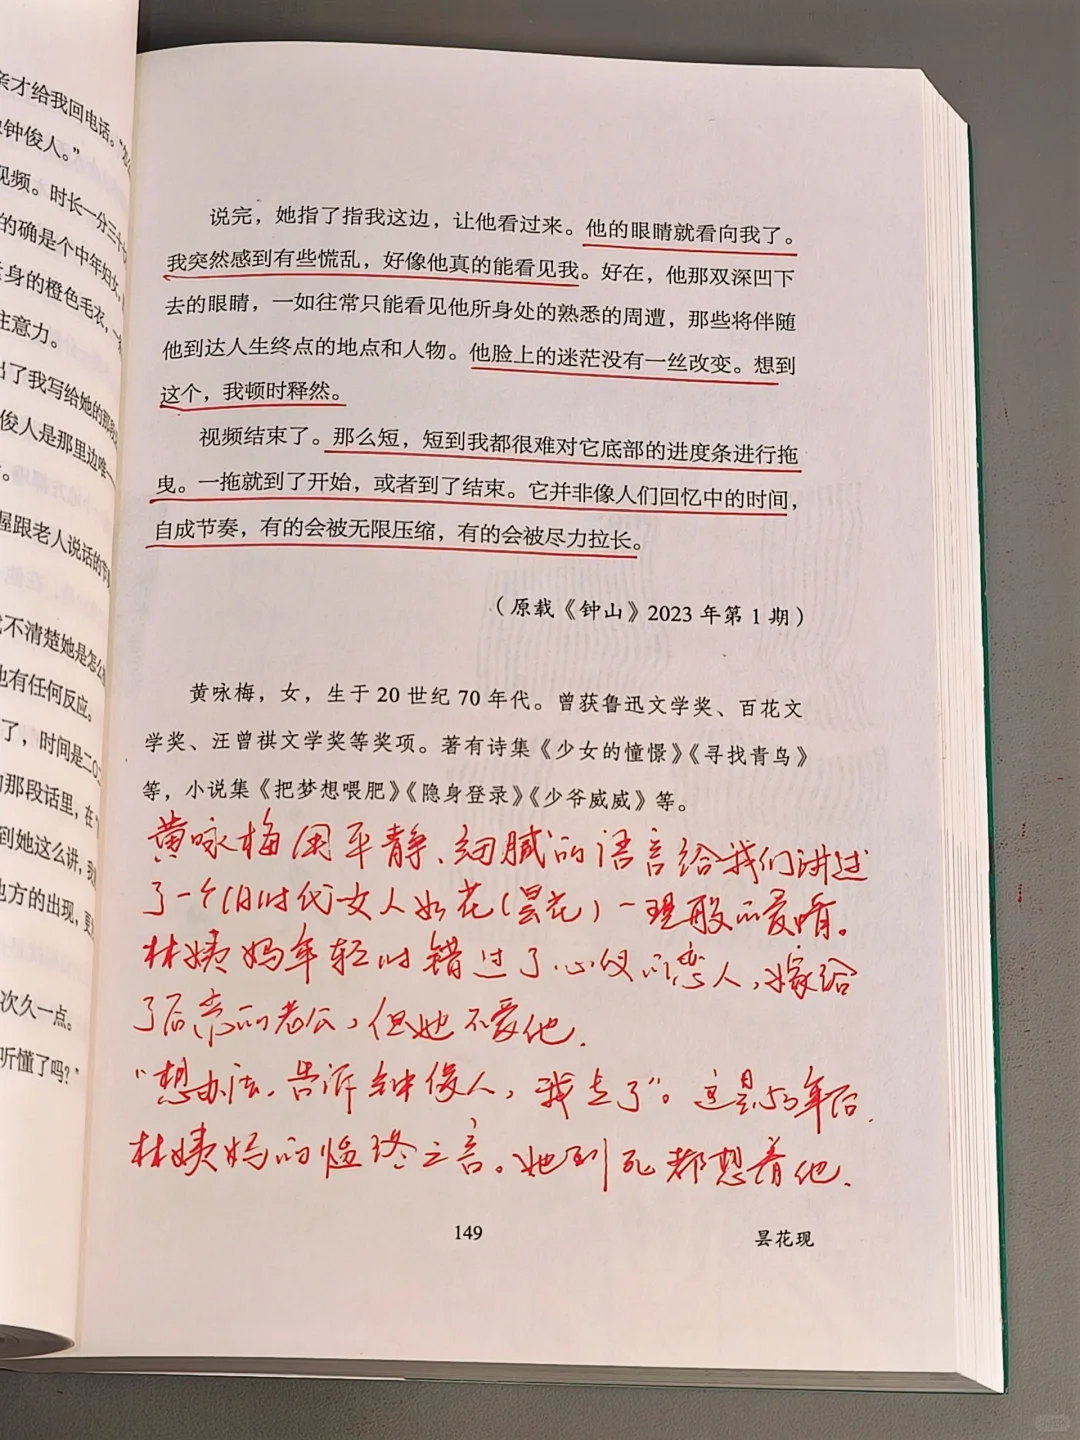 亲才给我回电话。
钟俊人。”
视频。时长一分三十
的确是个中年妇女,
身的橙色毛衣,一
注意力。
出了我写给她的那段
俊人是那里边唯一
握跟老人说话的节
不清楚她是怎么
也有任何反应。
了,时间是二〇二
的那段话里,在
到她这么讲,我
地方的出现,更
次久一点。
听懂了吗?”
说完,她指了指我这边,让他看过来。他的眼睛就看向我了。
我突然感到有些慌乱,好像他真的能看见我。好在,他那双深凹下
去的眼睛,一如往常只能看见他所身处的熟悉的周遭,那些将伴随
他到达人生终点的地点和人物。他脸上的迷茫没有一丝改变。想到
这个,我顿时释然。
视频结束了。那么短,短到我都很难对它底部的进度条进行拖
曳。一拖就到了开始,或者到了结束。它并非像人们回忆中的时间,
自成节奏,有的会被无限压缩,有的会被尽力拉长。
(原载《钟山》2023年第1期)
黄咏梅,女,生于20世纪70年代。曾获鲁迅文学奖、百花文
学奖、汪曾祺文学奖等奖项。著有诗集《少女的憧憬》《寻找青鸟》
等,小说集《把梦想喂肥》《隐身登录》《少爷威威》等。
黄咏梅用平静、细腻的语言给我们讲述
了一个旧时代女人如花(昙花)一现般的爱情。
林姨妈年轻时错过了心仪的恋人,嫁给
了后来的老公,但她不爱他.
“想办法,告诉钟俊人,我走了”。这是53年后.
林姨妈的临终之言。她到死都想着他.
149
昙花现